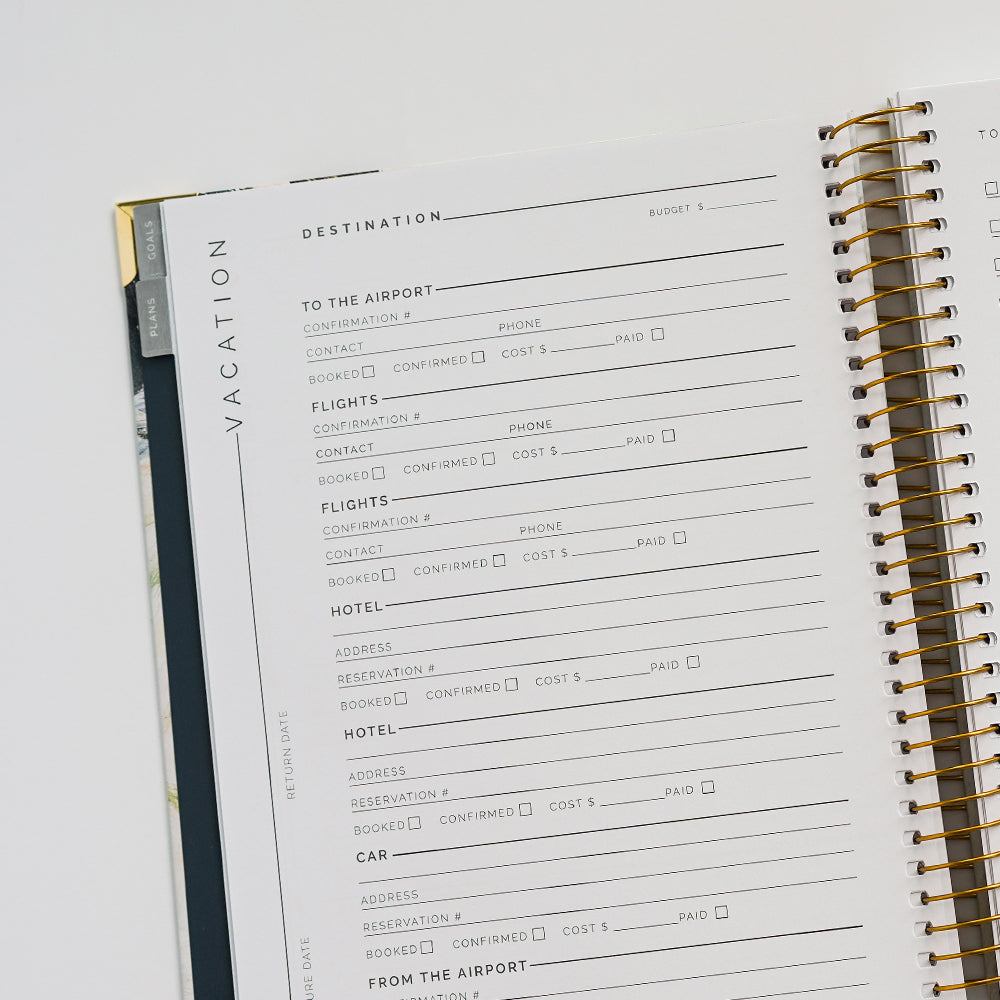 GOALS
PLANS
VACATION
RETURN DATE
DESTINATION
BUDGET $
TO THE AIRPORT
CONFIRMATION #
CONTACT PHONE
BOOKED CONFIRMED COST $ PAID
FLIGHTS
CONFIRMATION #
CONTACT PHONE
BOOKED CONFIRMED COST $ PAID
FLIGHTS
CONFIRMATION #
CONTACT PHONE
BOOKED CONFIRMED COST $ PAID
HOTEL
ADDRESS
RESERVATION #
BOOKED CONFIRMED COST $ PAID
HOTEL
ADDRESS
RESERVATION #
BOOKED CONFIRMED COST $ PAID
CAR
ADDRESS
RESERVATION #
BOOKED CONFIRMED COST $ PAID
FROM THE AIRPORT
TO